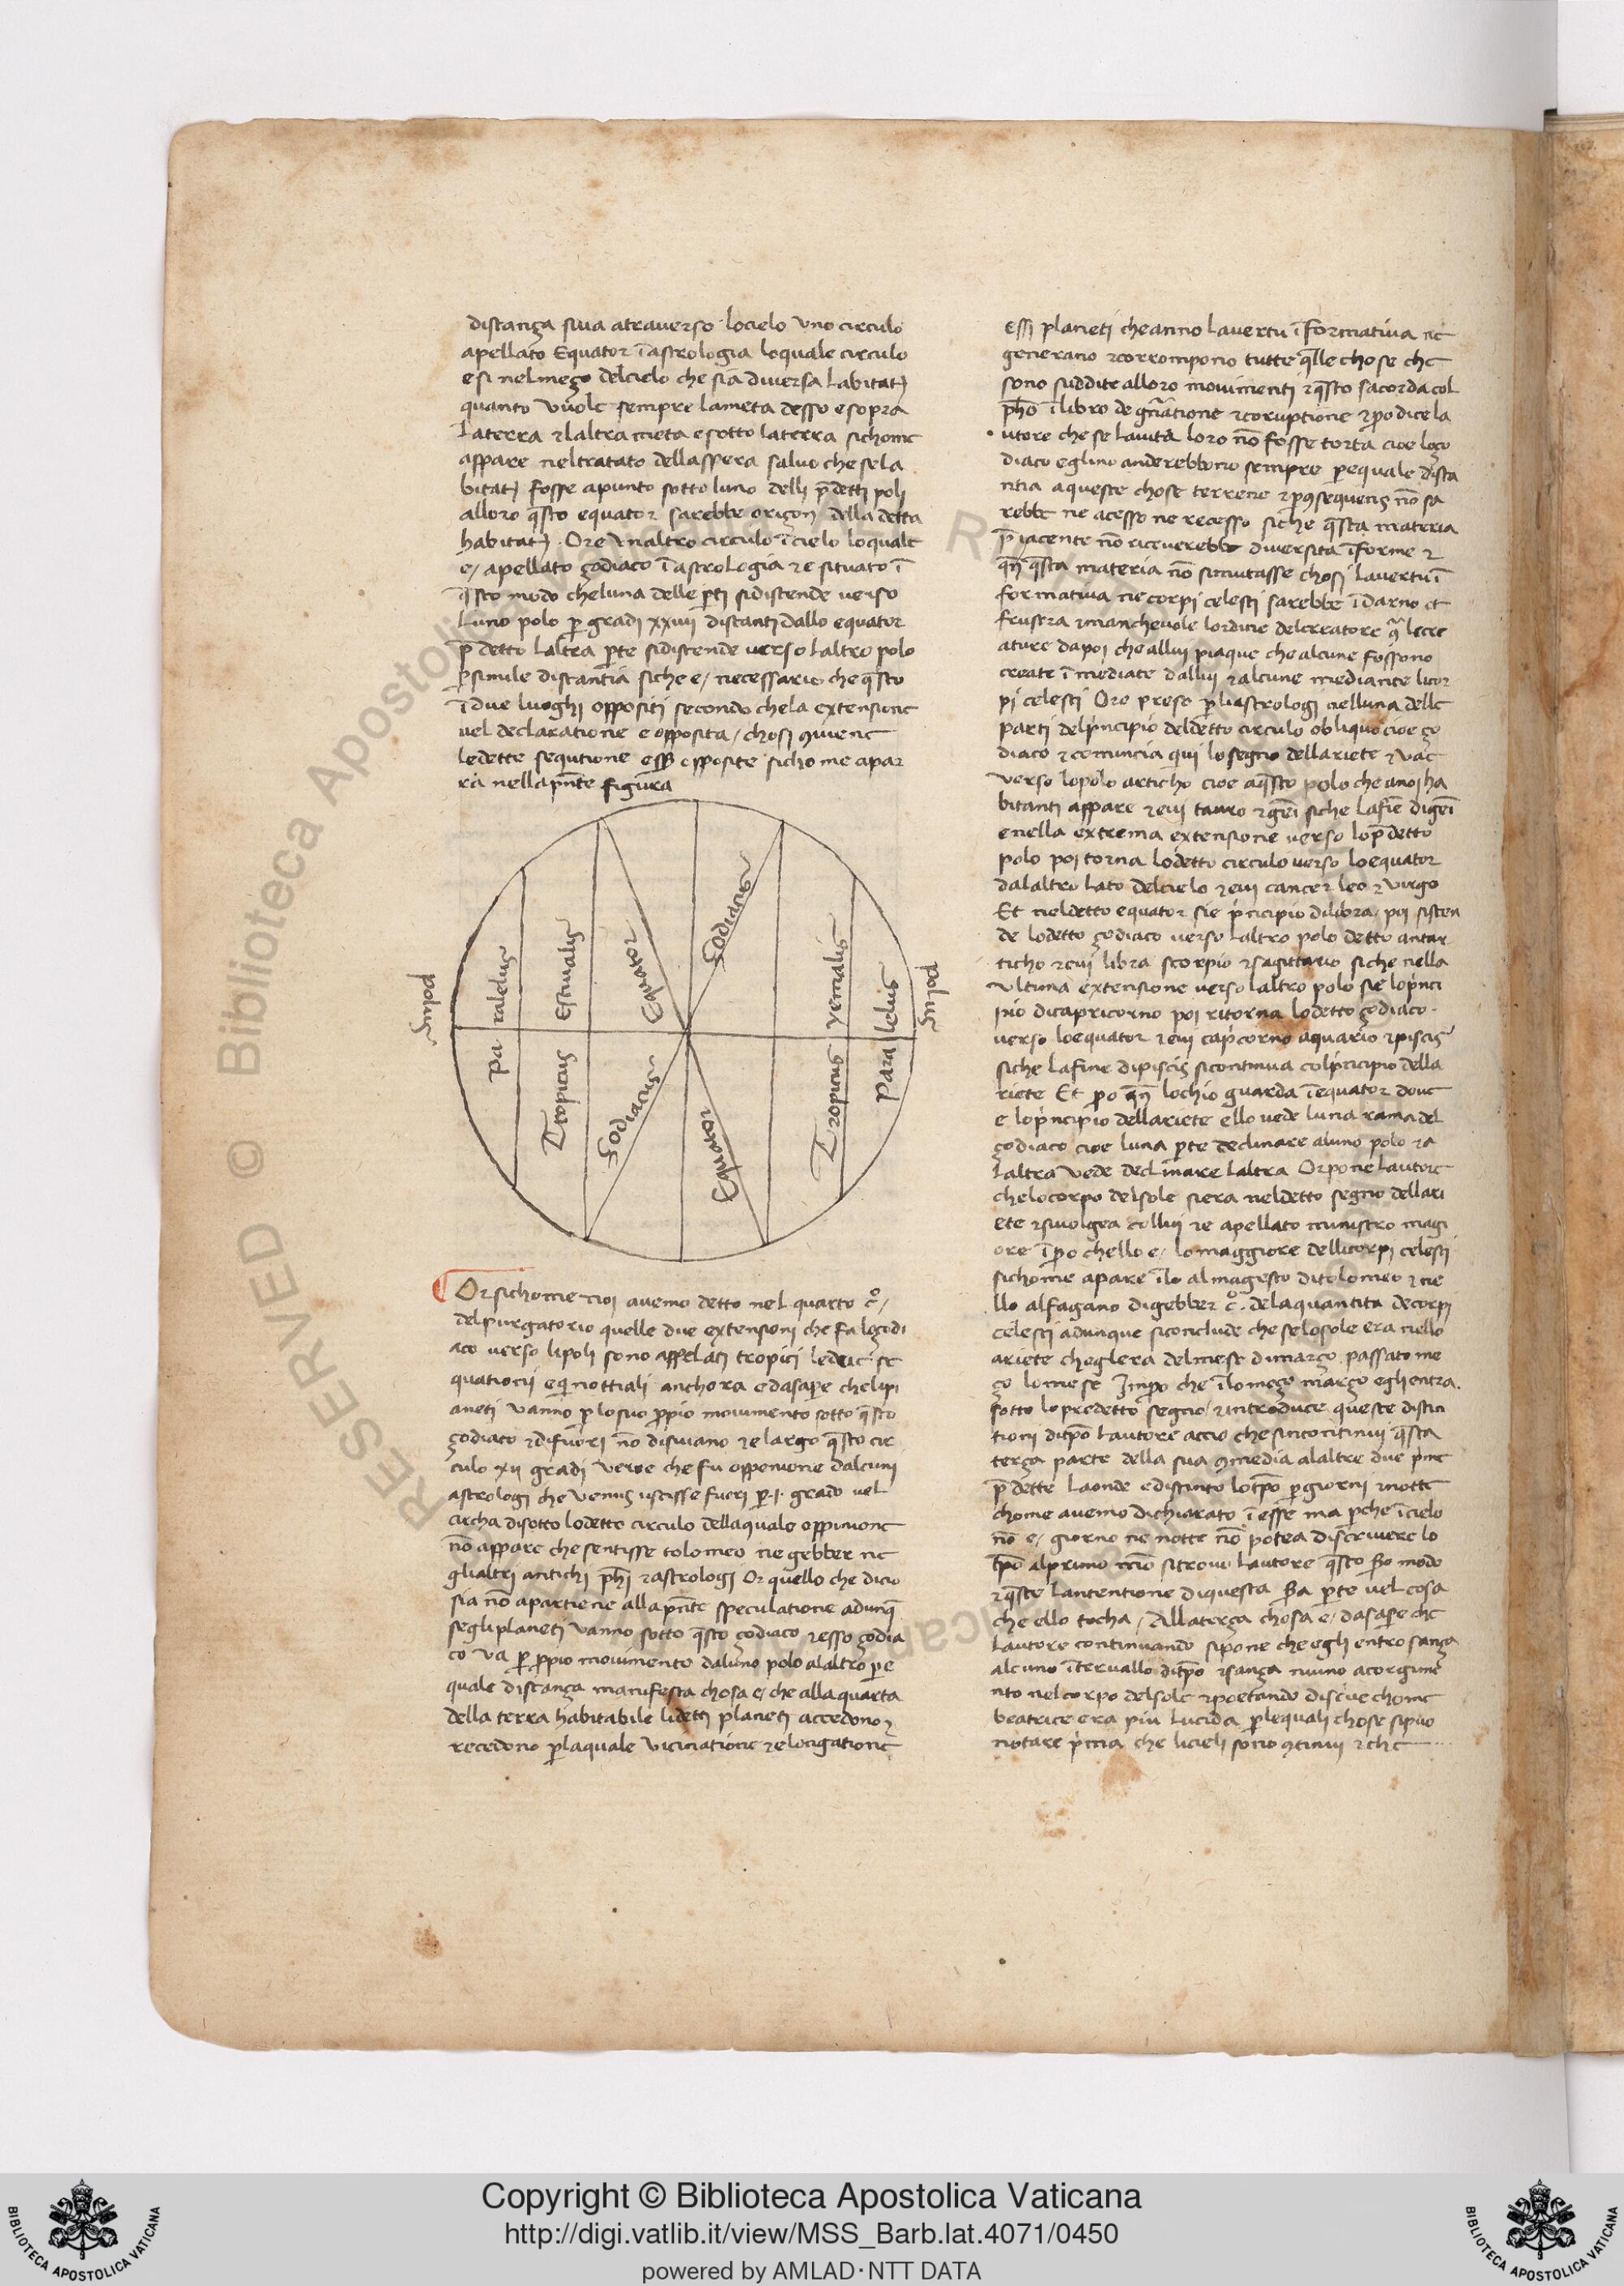 distanza siua atrauerso locielo vno circulo
apellato Equator ī astrologia loquale circulo
e si nelmezo delcielo che sia diuersa labitat
quanto vuole sempre lameta desso e sopra
laterra ⁊ laltra meta e sotto laterra sichome
appare neltratato dellaspera saluo che sela
bitat fosse apunto sotto luno delli p̄detti poli
alloro q̄sto equator sarebbe orizon della detta
habitat. Ore vnaltro circulo ī cielo loquale
e/ apellato zodiaco ī astrologia ⁊ e situato ī
q̄sto modo cheluna delle p̱ti sidistende verso
luno polo p̱ gradi xxiiii distanti dallo equator
p̄detto laltra p̱te sidistende verso laltro polo
p̱ simile distantia siche e/ necessario che q̄sto
ī due luoghi oppositi secondo chela extensione
uel declaratione e opposita / chosi ꝯuiene
ledette sequtione opposite sichome apar
rà nella pn̄te figura
polus
Pa raleLus
Tropicus Estiualis
Equator
Zodiacus
Zodiacus
Equator
Tropicus yemalis
Para lelus
polus
Or sichome noi auemo detto nel quarto c̊/
delpurgatorio quelle due extensioni che fa lozodi
aco verso lipoli sono appelati tropici se
quationi equinottiali anchora e dasap̱e chelipi
aneti vanno p̱ losuo p̱pio mouimento sotto q̄sto
zodiaco ⁊ difuori nō disuiano ⁊ e largo q̄sto cir
culo xii gradi vero e che fu oppenione dalcuni
astrologi che venus uscisse fuori p̱ .i. grado uel
circha disotto lodetto circulo dellaquale oppinione
nō appare che sentisse tolomeo ne gebber ne
glialtri antichi ph̄i ⁊ astrologi Or quello che dicio
sia nō apartiene alla pn̄te speculatione adunq̄
segli planeti vanno sotto q̄sto zodiaco ⁊ esso zodia
co va p̱ p̱pio mouimento daluno polo alaltro p̱ e
quale distanza manifesta chosa e/ che alla quarta
della terra habitabile lidetti planeti accedono ⁊
recedono p̱ laquale vicinatione ⁊ elongatione
Essi planeti che anno lavertu īformatiua ne
generano ⁊ corrompono tutte q̄lle chose che
sono suddite alloro mouimenti ⁊ q̄sto sacorda col
ph̄o ī libro de gn̄atione ⁊ coruptione ⁊ p̱o dice la
utore che se lauita loro nō fosse torta cioe lozo
diaco eglino anderebbono sempre p̱ equale dista
ntia aqueste chose terrene ⁊ p̱ ꝯsequens nō sa
rebbe ne acesso ne recesso siche q̄sta materia
p̄iacente nō riceuerebbe diuersita ī forme ⁊
q̄n q̄sta materia nō simutasse chosi lauertu ī
formatiua ne corpi celesti sarebbe ī darno et
frustra ⁊ mancheuole lordine delcreatore lecre
ature dapoi che allui piaque che alcune fossono
create īmediate dallui ⁊ alcune mediante licor
pi celesti Ore preso p̱ liastrologi nelluna delle
parti delprincipio deldetto circulo obliquo cioe zo
diaco ⁊ comincia qui lo segno dellariete ⁊ vae
verso lopolo articho cioe aq̄sto polo che anoi ha
bitanti appare ⁊ eui tauro ⁊ gemī siche lafine digemī
e nella extrema extensione verso lop̄detto
polo poi torna lodetto circulo verso loequator
dalaltro lato delcielo ⁊ eui cancer leo ⁊ virgo
Et neldetto equator sie principio dilibra / poi sisten
de lodetto zodiaco verso laltro polo detto antar
ticho ⁊ eui libra scorpio ⁊ sagittario siche nella
vltima extensione verso laltro polo sie loprinci
pio dicapricorno poi ritorna lodetto zodiaco
verso loequator ⁊ eui capricorno aquario ⁊ piscis
siche lafine dipiscis sicontinua colprincipio della
riete Et p̱o q̄n lochio guarda ī equator doue
e loprincipio dellariete ello vede luna rama del
zodiaco cioe luna p̱te declinare aluno polo ⁊ a
laltra vede declinare laltra Or pone lautore
chelocorpo delsole siera neldetto segno dellari
ete ⁊ siuolgea collui ⁊ e apellato ministro magi
ore īp̱o chello e/ lo maggiore dellicorpi celesti
sichome apare īlo almagesto ditolomeo ⁊ ne
llo alfagano digebber c̊. delaquantita decorpi
celesti adunque siconclude che selosole era nello
ariete cheglera delmese dimarzo passato me
zo lomese Imp̱o che īlomezo marzo egli entra
sotto lo predetto segno / ⁊ introduce queste distin
tioni dit̄po lautore accio che sincontinui q̄sta
terza parte della sua ꝯmedia alaltre due prime
p̄dette Laonde e distinto lot̄po p̱ giorni ⁊ notte
chome auemo dichiarato ī esse ma p̱che ī cielo
nō e/ giorno ne notte nō potea discriuere lo
t̄po alprimo mō sitrouo lautore q̄sto modo
⁊ q̄ste lantentione diquesta p̱te uel cosa
che ello tocha / Allaterza chosa e/ dasap̱e che
lautore continuando sipone che egli entro sanza
alcuno īteruallo dit̄po ⁊ sanza niuno acorgime
nto nelcorpo delsole ⁊ poetando discriue chome
beatrice era piu lucida p̱ lequali chose sipuo
notare prima che licieli sono ꝯtinui ⁊ che
RESERVED © Biblioteca Apostolica
Copyright © Biblioteca Apostolica Vaticana
http://digi.vatlib.it/view/MSS_Barb.lat.4071/0450
powered by AMLAD·NTT DATA
BIBLIOTECA APOSTOLICA VATICANA
BIBLIOTECA APOSTOLICA VATICANA